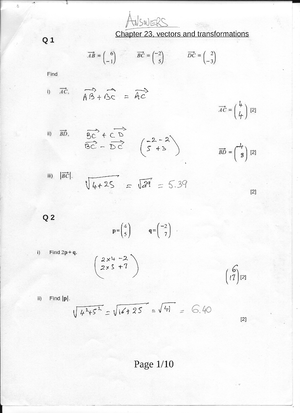 ANSWERS
Chapter 23, vectors and transformations
Q 1
AB = (6 -1) BC = (-2 5) DC = (2 -3)
Find
i) AC, AB + BC = AC
AC = (4 4) [2]
ii) BD, BC + CD
BC - DC (-2 - 2 5 + 3)
BD = (-4 8) [2]
iii) |BC|. √4+25 = √29 = 5.39
[2]
Q 2
p = (4 5) q = (-2 7)
i) Find 2p + q. (2x4 -2 2x5 +7)
(6 17) [2]
ii) Find |p|. √4²+5² = √16+25 = √41 = 6.40
[2]
Page 1/10